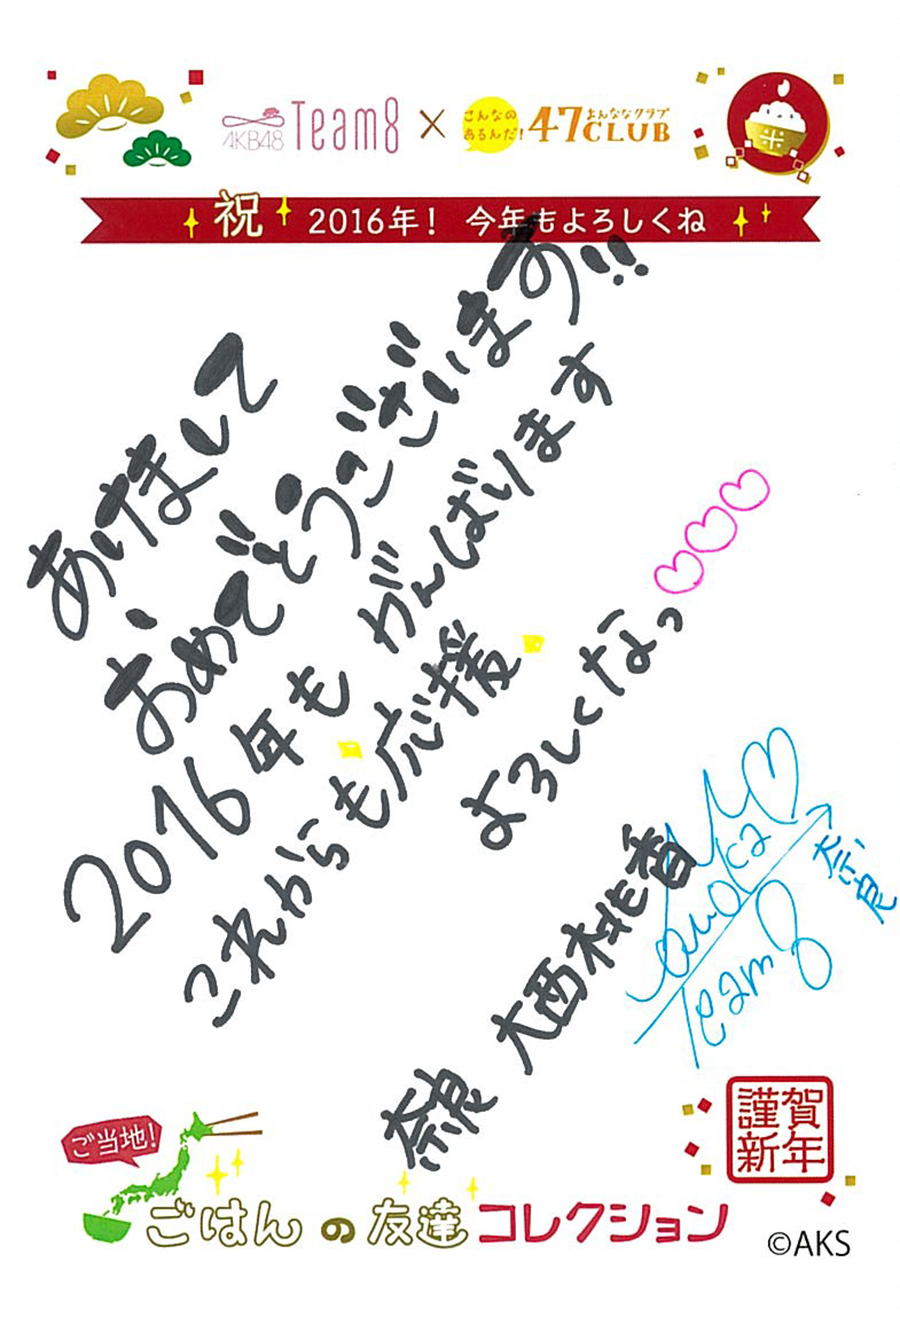 AKB48 Team8 × こんなのあるんだ! 47CLUB よんななクラブ
祝 2016年! 今年もよろしくね
あけまして
おめでとうございます!!
2016年も がんばります
これからも応援
よろしくなっ♡♡♡
奈良 大西桃香
Momoka
Team8
→奈良
謹賀
新年
ご当地!
ごはんの友達コレクション
©AKS